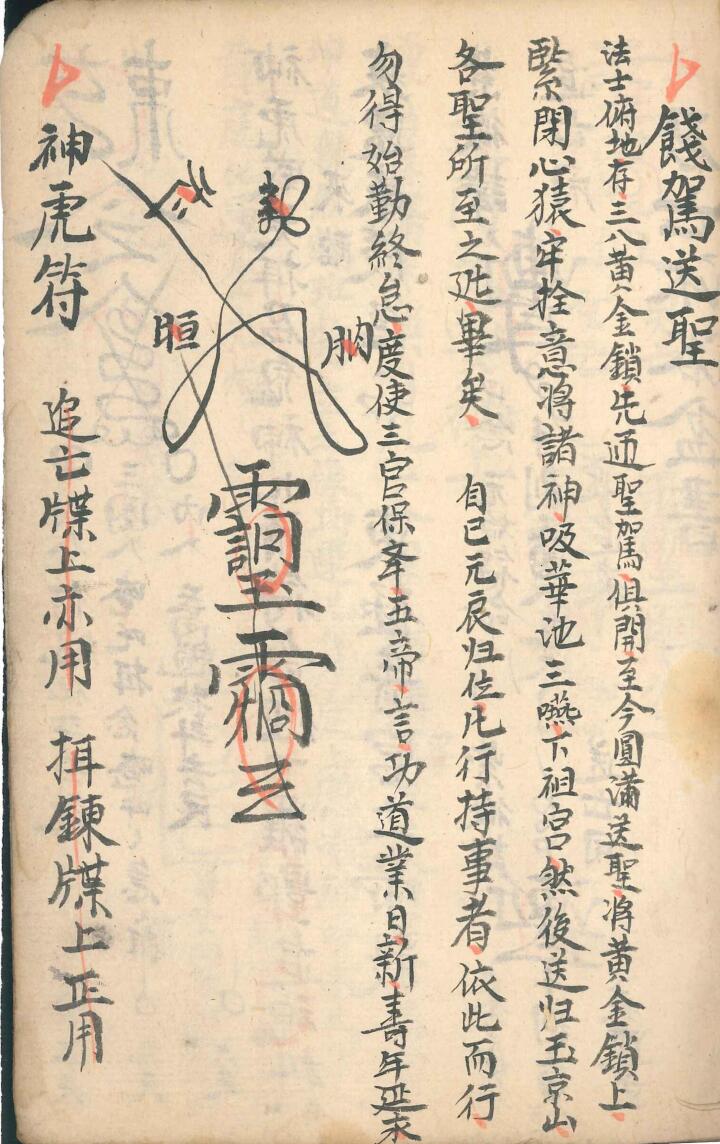 餞駕送聖
法士俯地存三八黃金鎖先通聖駕俱開至今圓滿送聖將黃金鎖上
緊閉心猿牢拴意將諸神吸華池三嚥下祖宮然後送归玉京山
各聖所至之阤畢矣 自己元辰归位凡行持事者依此而行
勿得始勤終怠度使三官保奉五帝言功道業日新壽年延永
神虎符 追亡牒上亦用 揖鍊牒上正用